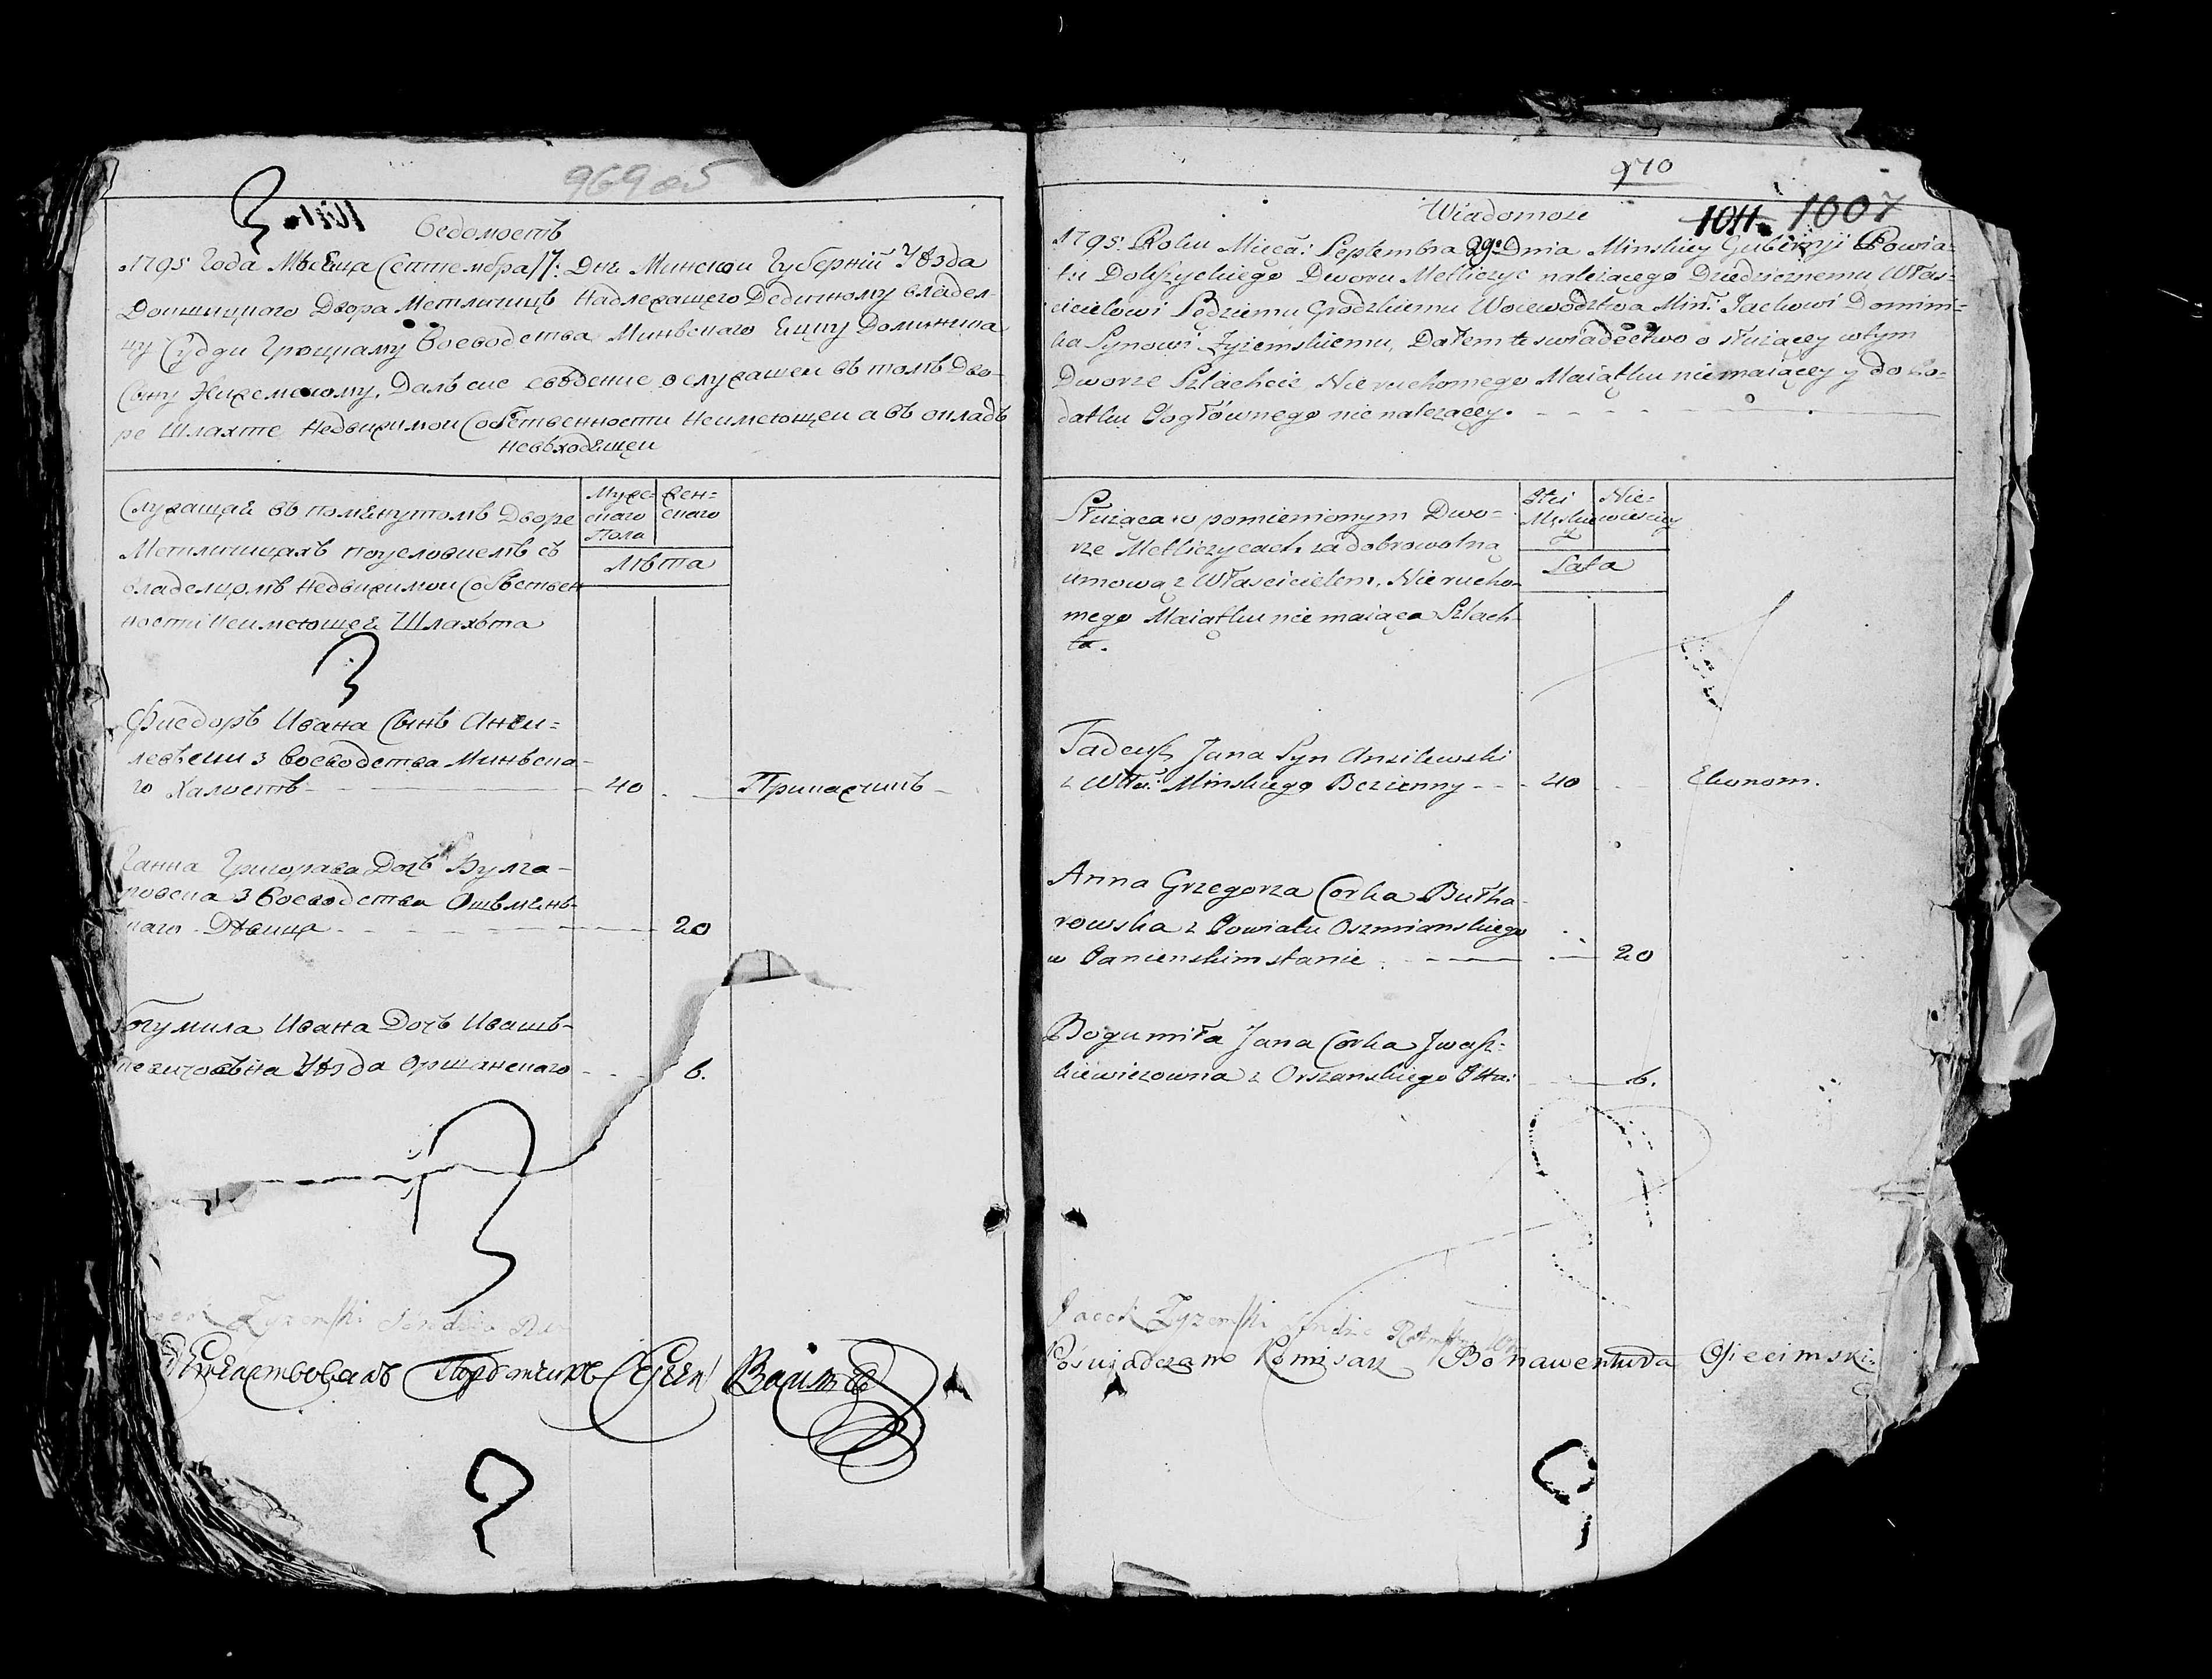 969 об
Ведомость
1795 Года Мѣсеца Септембра 17: Дня Минской Губерніи Уѣзда
Докшицкого Двора Метличицъ Надлежащего Дедичному владел-
цу Судди Гроцкаму Воеводства Минъскаго Яцку Доминика
Сыну Жижемскому, Далъ сие сведение о служащей въ томъ Дво-
ре Шляхте Недвижимои Собственности Неимеющеи а въ окладъ
невходящеи
Служащая въ помянутомъ Дворе
Метличицахъ поусловиемъ съ
владелцомъ недвижимои Собственъ
ности Неимеющея Шляхта
Муже-
скаго
Пола
Жен-
скаго
Лѣта
Фиедоръ Ивана Сынъ Анси-
левски з Воеводства Минъска-
го Халостъ 40 Приказчикъ
Ганна Григорава Дочь Булга-
ровска з Воеводства Ошъмянъ-
скаго Дѣвица 20
Богумила Ивана Дочь Ивашъ-
кевичовъна Уѣзда Оршанскаго 6.
Zyzemski
970
1011 1007
Wiadomosc
1795: Roku Miecą: Septembra 29: Dnia Minskiey Gubernji Powia-
tu Dokszyckiego Dworu Metliczyc nalezącego Dziedzicznemu Włas-
cicielowi Sędziemu Grodzkiemu Woiewodztwa Miń: Jackowi Domini-
ka Synowi Zyżemskiemu, Dałem te swiadectwo o służącey wtym
Dworze Szlachcie Nieruchomego Maiątku niemaiącey y do Po-
datku Pogłównego nie nalezącey.
Służąca w pomienionym Dwo-
rze Metliczycach za dobrowolną
umową z Włascicielem, Nierucho-
mego Maiątku nie maiąca Szlach-
ta.
Płci
Męskiey
Nie-
wiesciey
Lata
Tadeusz Jana Syn Ansilewski
z Wttwa: Minskiego Bezienny 40 Ekonom.
Anna Grzegorza Corka Bułha-
rowska z Powiatu Oszmianskiego
w Panienskim stanie 20
Bogumiła Jana Corka Iwasz-
kiewiczowna z Orszanskiego Pttu: 6.
Jacek Zyzemski
Poświadczam Komisarz Bonawentura Osiecimski